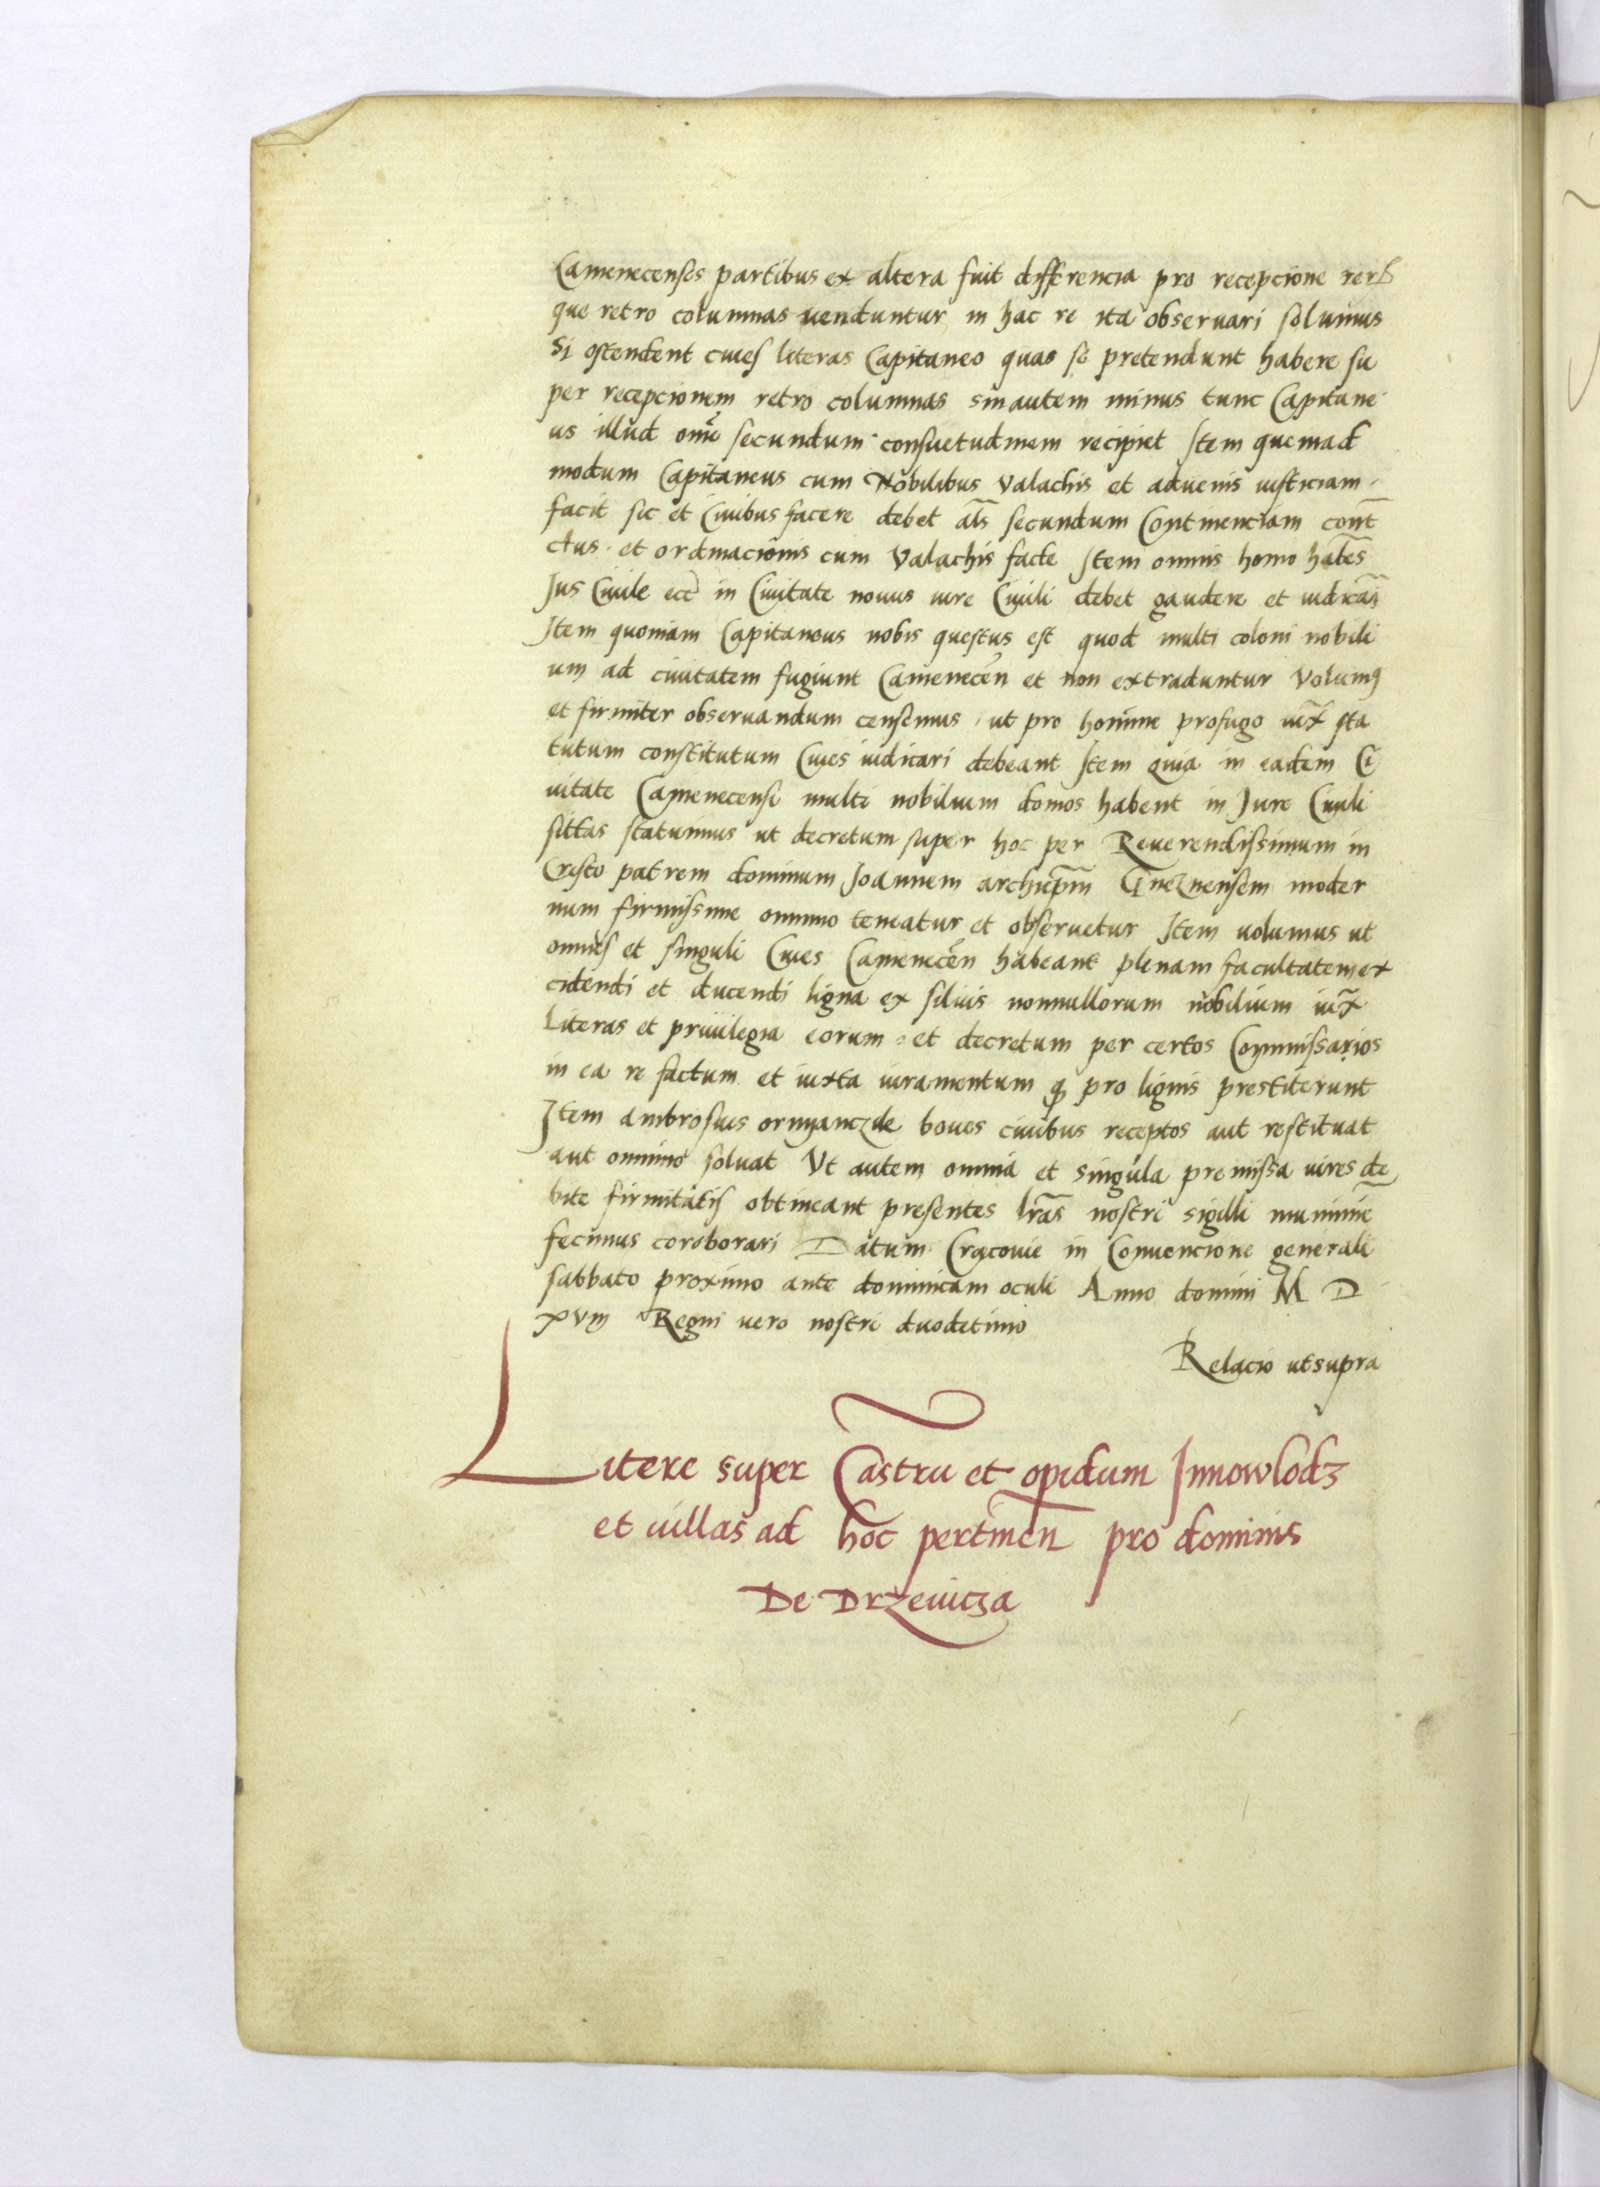 Camenecenses partibus ex altera fuit differencia pro recepcione rerꝝ
que retro columnas venduntur in hac re ita observari solumus
Si ostendent cives literas Capitaneo quas se pretendunt habere su
per recepcionem retro columnas sin autem minus tunc Capitane
us illud om̄e secundum consuetudinem recipiet Item quemad
modum Capitaneus cum Nobilibus Valachis et advenis iusticiam
facit sic et Civibus facere debet als̄ secundum Continenciam cont̄
ctus et ordinacionis cum Valachis facte Item omnis homo habēs
Jus Civile ecē in Civitate novus iure Civili debet gaudere et iudicārj
Item quoniam Capitaneus nobis questus est quod multi coloni nobili
um ad civitatem fugiunt Camenecēn et non extraduntur Volumꝰ
et firmiter observandum censemus ut pro homine profugo iux̄ sta
tutum constitutum Cives iudicari debeant Item quia in eadem Ci
vitate Camenecensi multi nobilium domos habent in Jure Civili
sittas statuimus ut decretum super hoc per Reverendissimum in
Cristo patrem dominum Joannem archiep̄m Gneznensem moder
num firmissime omnino teneatur et observetur Item volumus ut
omnes et singuli Cives Camenecēn habeant plenam facultatem ex
cidendi et ducendi ligna ex silvis nonnullorum nobilium iux̄
literas et privilegia eorum et decretum per certos Commissarios
in ea re factum et iuxta iuramentum qď pro lignis prestiterunt
Item ambrosius ormyanczik boves civibus receptos aut restituat
aut omnino solvat Ut autem omnia et singula premissa vires de
bite firmitatis obtineant presentes lr̄as nostri sigilli munimīe
fecimus coroborari Datum Cracovie in Convencione generali
sabbato proximo ante dominicam oculi Anno domini M D
xviij Regni vero nostri duodecimo
Relacio ut supra
Litere super Castru et opidum Innowlodz
et villas ad hoc pertineñ pro dominis
De Drzevicza